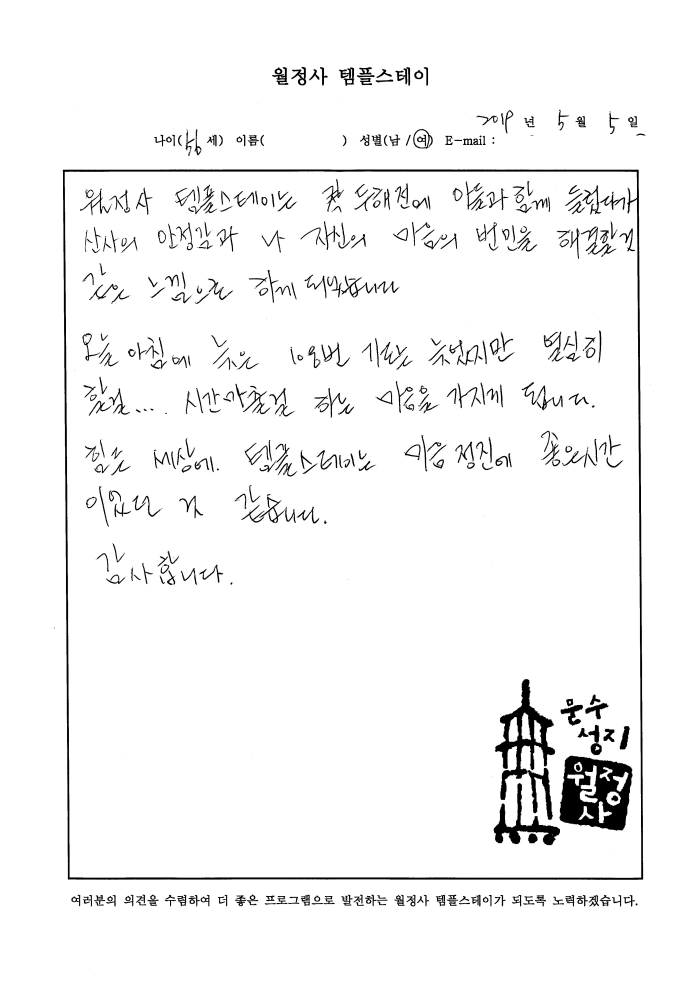 월정사 템플스테이
2019 년 5 월 5 일
나이(56 세) 이름( ) 성별(남 / 여) E-mail :
월정사 템플스테이는 두해전에 아들과 함께 들렸다가
산사의 안정감과 나 자신의 마음의 번민을 해결할것
같은 느낌으로 하게 되었습니다
오늘 아침에 늦은 108번 기도는 늦었지만 열심히
할걸.... 시간맞출걸 하는 마음을 가지게 됩니다.
힘든 세상에. 템플스테이는 마음 정진에 좋은시간
이었던 것 같습니다.
감사합니다.
문수
성지
월정
사
여러분의 의견을 수렴하여 더 좋은 프로그램으로 발전하는 월정사 템플스테이가 되도록 노력하겠습니다.